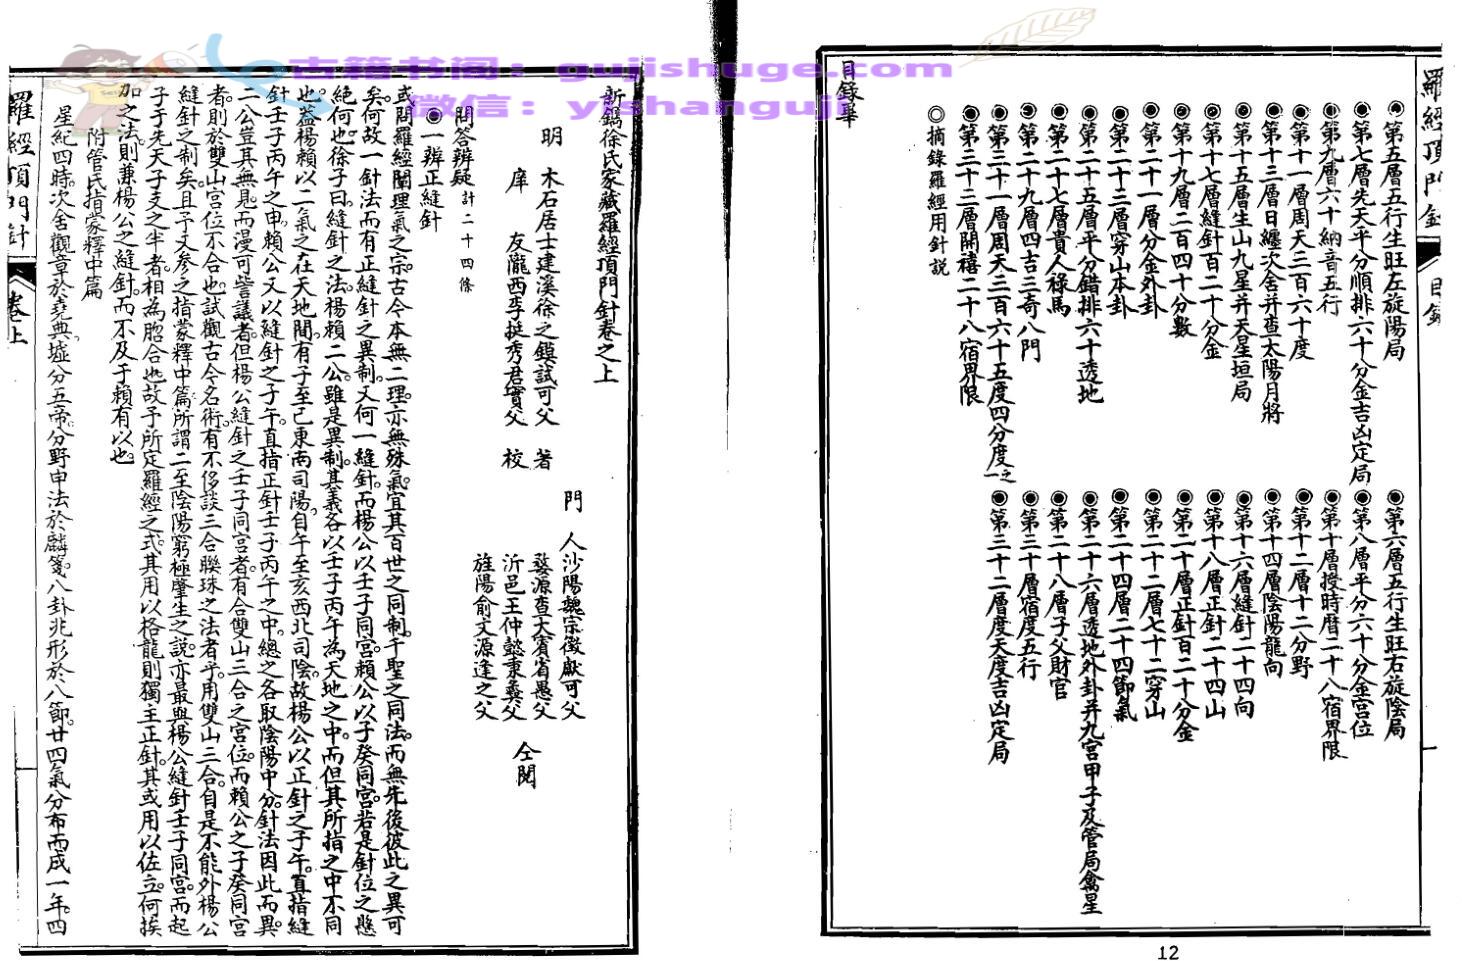 古籍书阁：gujishuge.com
微信：yishanguji
羅經頂門針
目錄
◉第五層五行生旺左旋陽局
◉第六層五行生旺右旋陰局
◉第七層先天平分順排六十分金吉凶定局
◉第八層平分六十分金宮位
◉第九層六十納音五行
◉第十層授時曆二十八宿界限
◉第十一層周天三百六十度
◉第十二層十二分野
◉第十三層日纏次舍并查太陽月將
◉第十四層陰陽龍向
◉第十五層生山九星并天星垣局
◉第十六層縫針二十四向
◉第十七層縫針百二十分金
◉第十八層正針二十四山
◉第十九層二百四十分數
◉第二十層正針百二十分金
◉第二十一層分金外卦
◉第二十二層七十二穿山
◉第二十三層穿山本卦
◉第二十四層二十四節氣
◉第二十五層平分錯排六十透地
◉第二十六層透地外卦并九宮甲子及管局禽星
◉第二十七層貴人祿馬
◉第二十八層子父財官
◉第二十九層四吉三奇八門
◉第三十層宿度五行
◉第三十一層周天三百六十五度四分度之一
◉第三十二層度天度吉凶定局
◉第三十三層開禧二十八宿界限
◎摘錄羅經用針說
目錄畢
12
新鐫徐氏家藏羅經頂門針卷之上
明　木石居士建溪徐之鏌試可父　著
庠　友隴西李挺秀君實父　校
門　人沙陽魏宗徵獻可父
婺源查大賓省愚父
沂邑王仲懿秉彝父
旌陽俞文源逢之父
仝閱
問答辨疑計二十四條
◉一辨正縫針
或問羅經闡理氣之宗古今本無二理亦無殊氣宜其百世之同制千聖之同法而無先後彼此之異可
矣何故一針法而有正縫針之異制又何一縫針而楊公以壬子同宮賴公以子癸同宮若是針位之懸
絕何也徐子曰縫針之法楊賴二公雖是異制其義各以壬子丙午為天地之中而但其所指之中不同
也葢楊賴以二氣之在天地間有子至巳東南司陽自午至亥西北司陰故楊公以正針之子午直指縫
針壬子丙午之中賴公又以縫針之子午直指正針壬子丙午之中總之各取陰陽中分針法因此而異
二公豈其無見而漫可訾議者但楊公縫針之壬子同宮者有合雙山三合之宮位而賴公之子癸同宮
者則於雙山宮位不合也試觀古今名術有不侈談三合聯珠之法者乎用雙山三合自是不能外楊公
縫針之制矣且予又參之指蒙釋中篇所謂二至陰陽窮極肇生之說亦最與楊公縫針壬子同宮而起
子于先天子支之半者相為脗合也故予所定羅經之式其用以格龍則獨主正針其或用以佐立何挨
加之法則兼楊公之縫針而不及于賴有以也
附管氏指蒙釋中篇
星紀四時次舍觀章於堯典墟分五帝分野申法於麟箋八卦兆形於八節廿四氣分布而成一年四
羅經頂門針
卷上